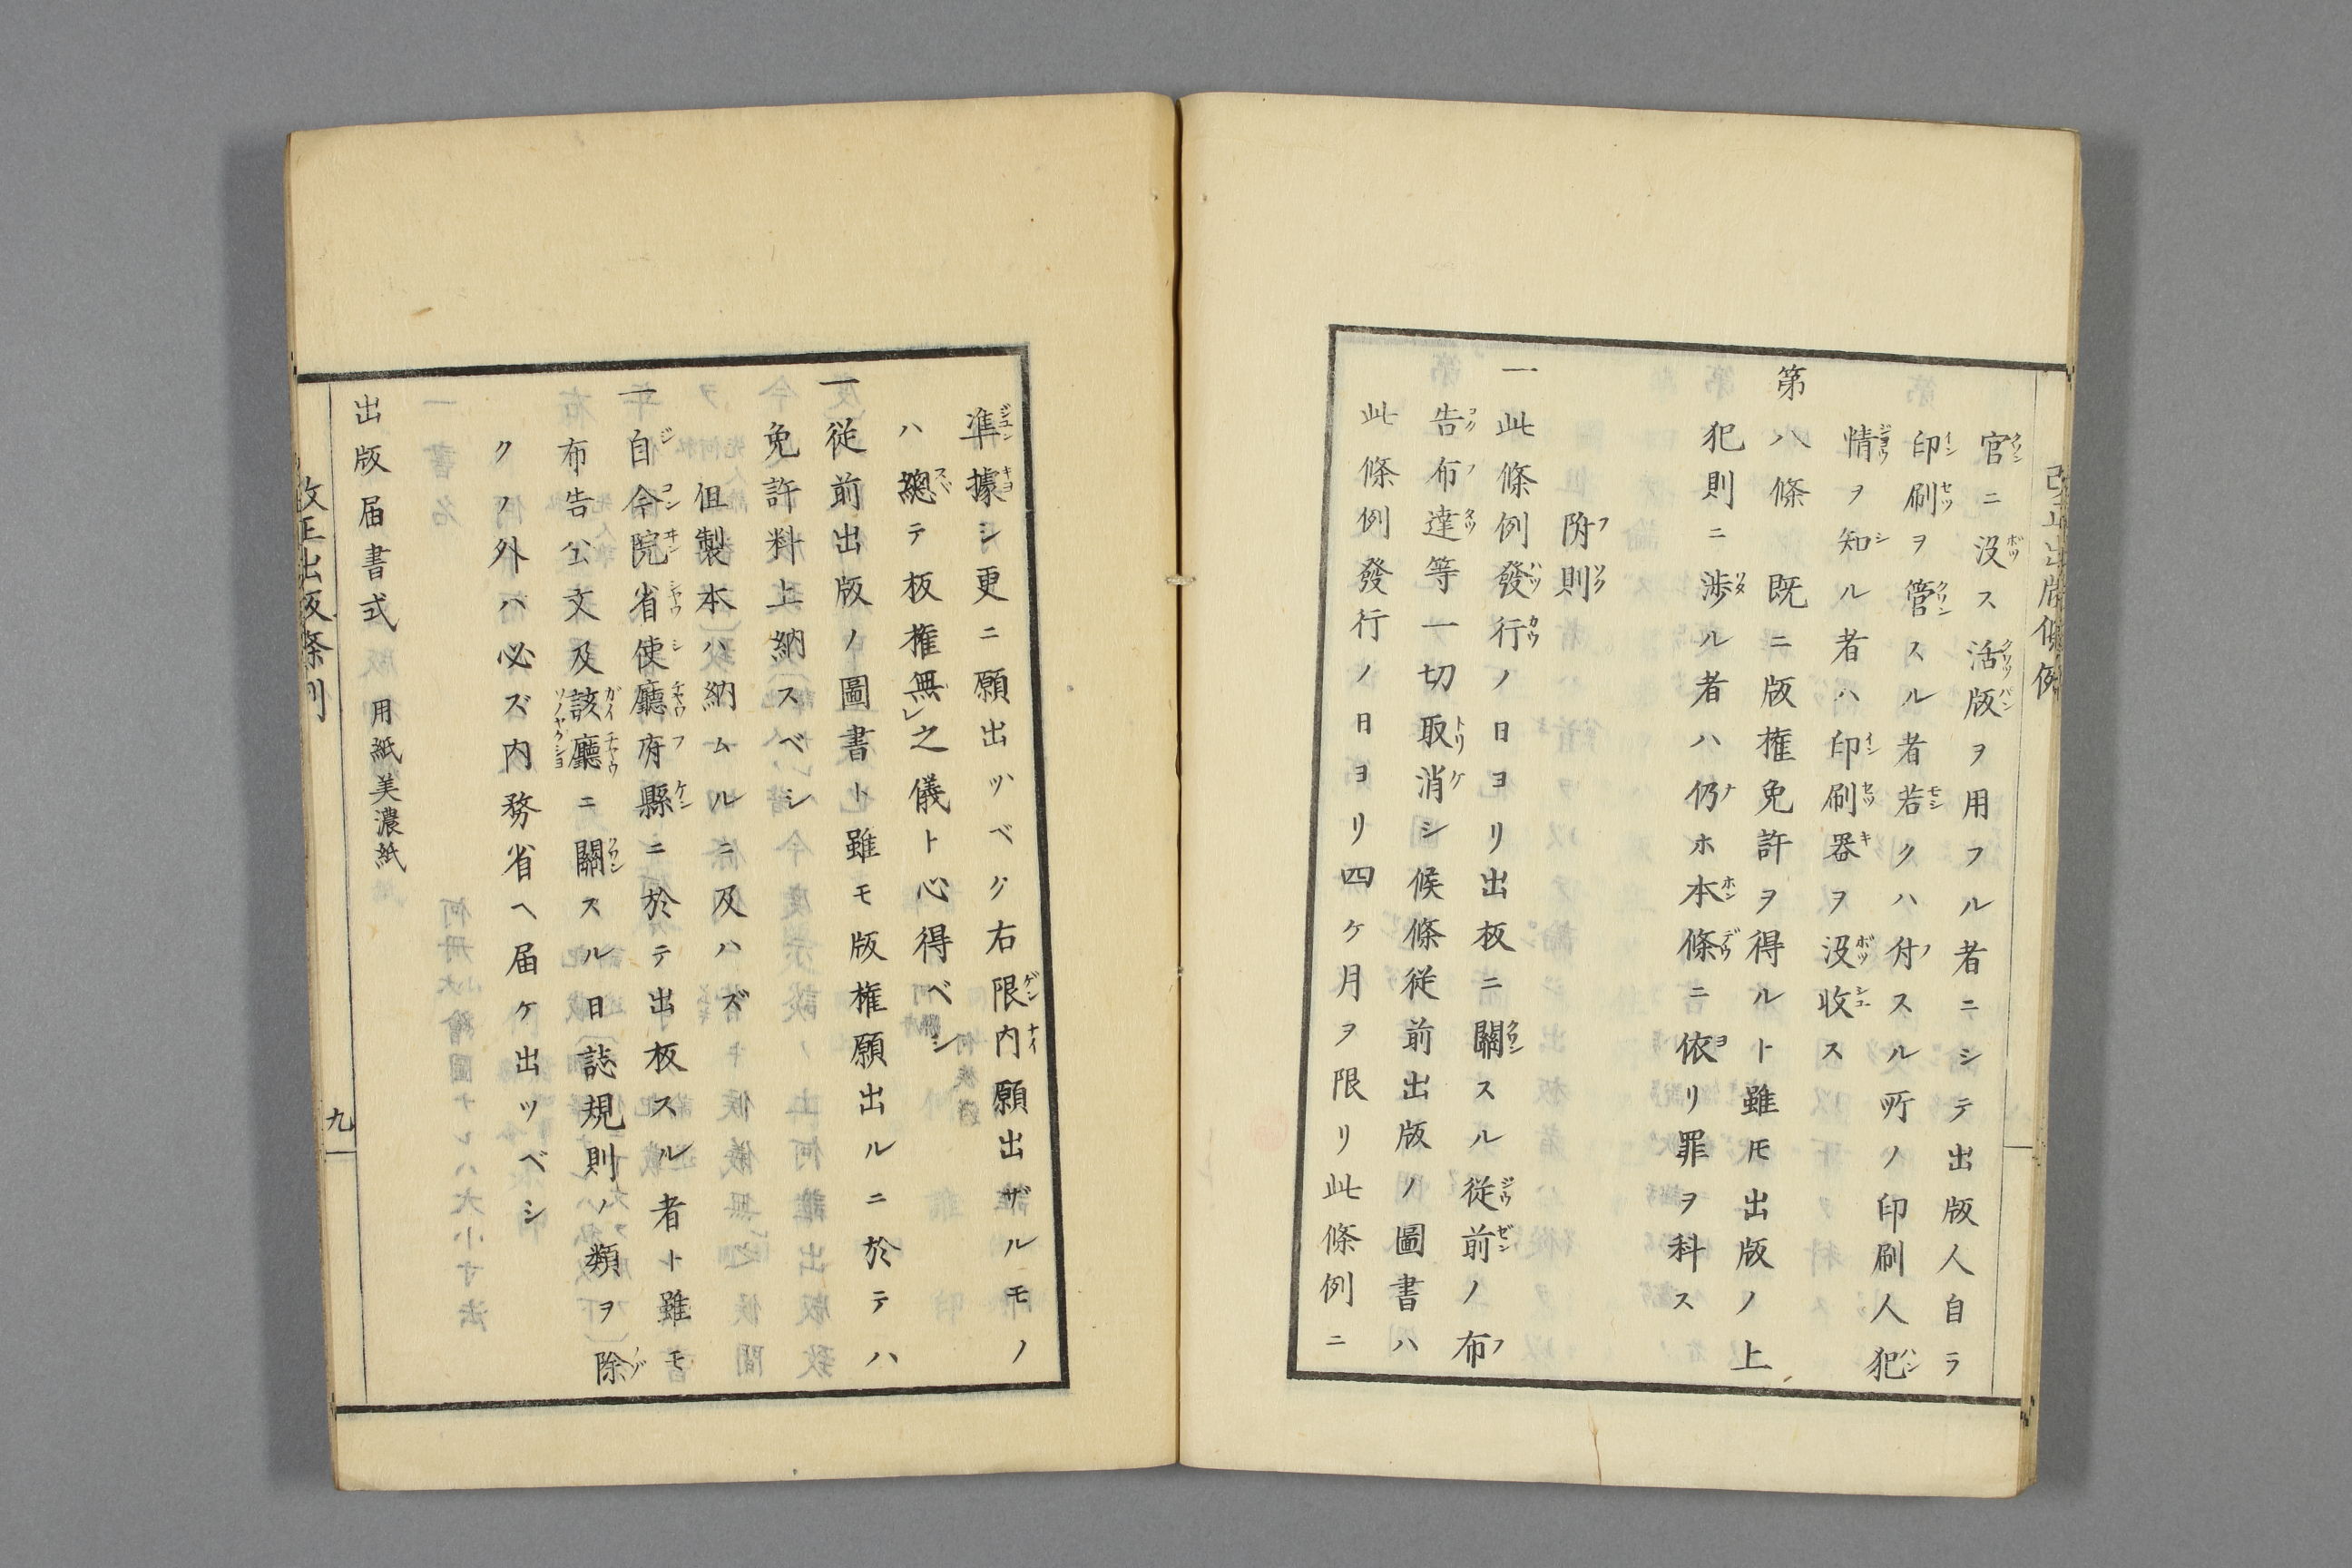 改正出版條例
官ニ沒ス活版ヲ用フル者ニシテ出版人自ラ
印刷ヲ管スル者若クハ付スル所ノ印刷人犯
情ヲ知ル者ハ印刷器ヲ沒收ス
第八條 既ニ版権免許ヲ得ルト雖モ出版ノ上
犯則ニ渉ル者ハ仍ホ本條ニ依リ罪ヲ科ス
附則
一此條例發行ノ日ヨリ出板ニ關スル従前ノ布
告布達等一切取消シ候條従前出版ノ圖書ハ
此條例發行ノ日ヨリ四ケ月ヲ限リ此條例ニ
準據シ更ニ願出ツベク右限内願出ザルモノ
ハ總テ板権無レ之儀ト心得ベシ
一従前出版ノ圖書ト雖モ版権願出ルニ於テハ
免許料上納スベシ
但製本ハ納ムルニ及ハズ
一自今院省使廳府縣ニ於テ出板スル者ト雖モ
布告公文及該廳ニ關スル日誌規則ノ類ヲ除
クノ外ハ必ズ内務省ヘ届ケ出ツベシ
出版届書式 用紙美濃紙
改正出版條例
九